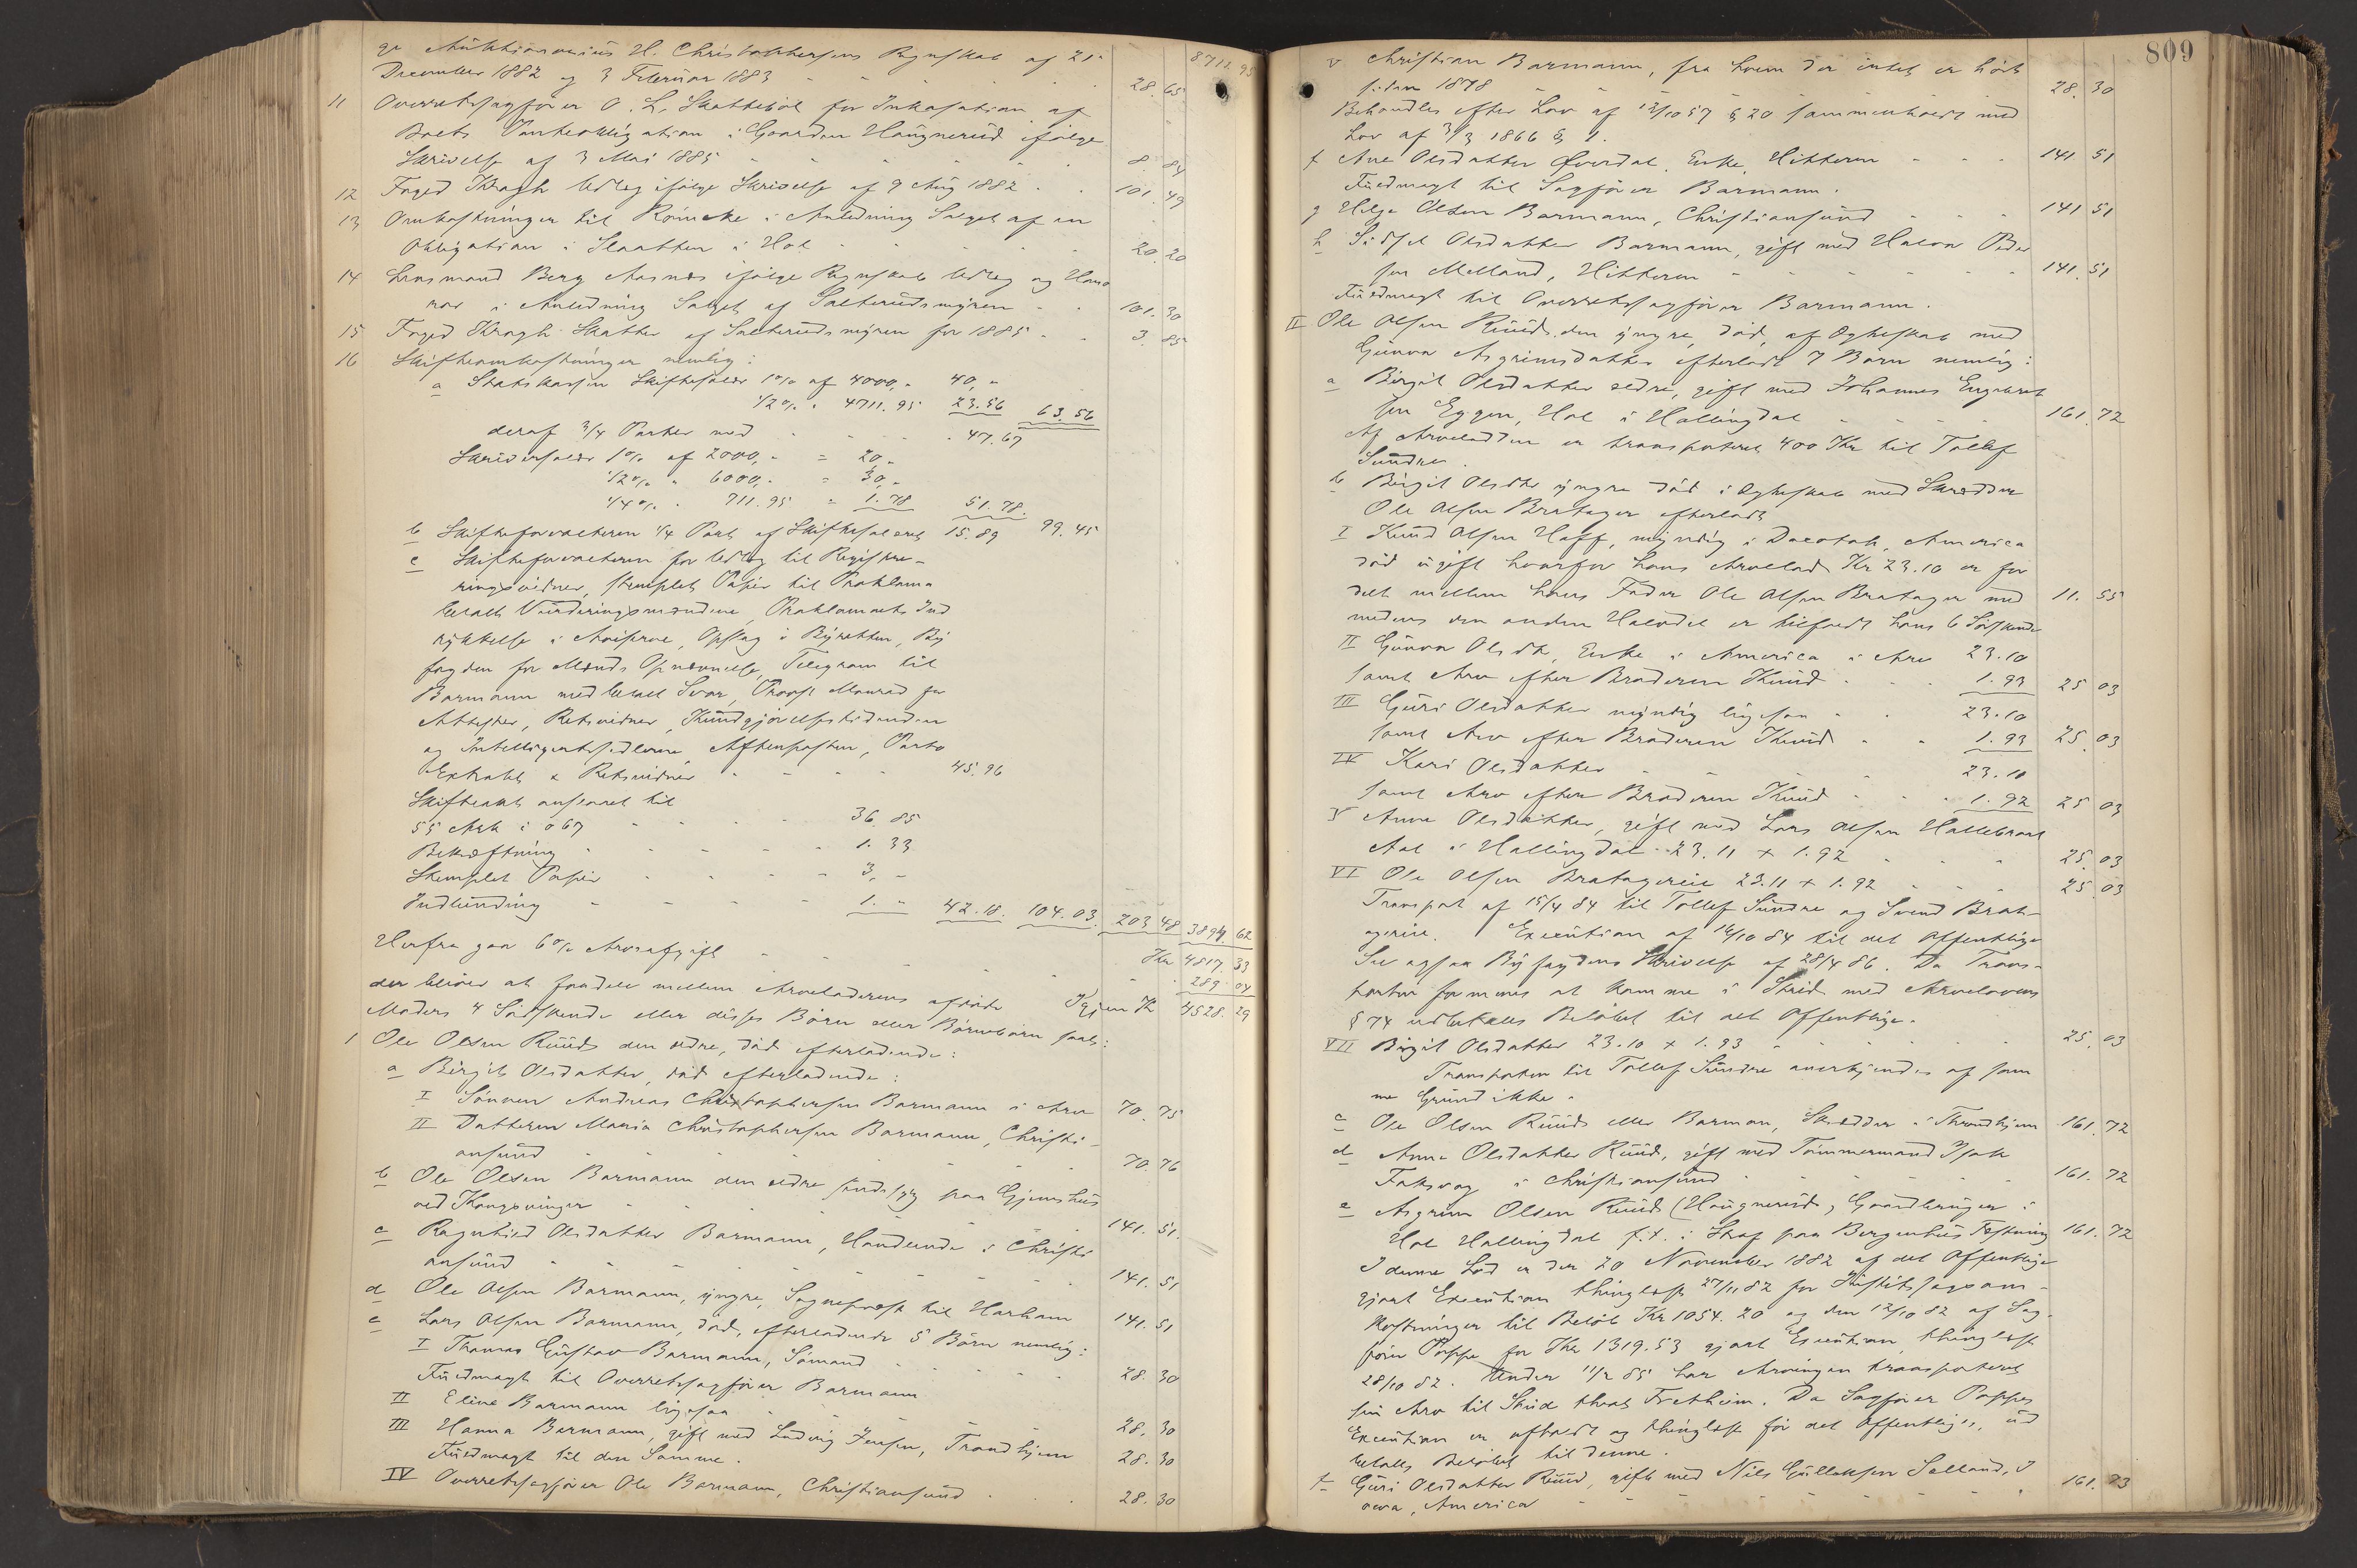 ge Auktionarius H. Christophersens Regnskab af 21. 8711 95
December 1882 og 3 Februar 1883 - - - 28. 65.
11 Overretssagfører O. L. Skattebøl for Inkasation af
Boets Panteobligation i Gaarden Haugnerud ifølge
Skrivelse af 3 Mai 1885 - - - 8 84
12 Foged Kragh Udlæg ifølge Skrivelse af 9 Aug 1882 . . 101. 49
13 Omkostninger til i Anledning Salget af en
Obligation i Slaatten i Hol - - - 20. 20
14 Lensmand Berg Aasnæs ifølge Regnskab Udlæg og Hono
rar i Anledning Salget af Sælterudsmyren - - 101. 30
15 Foged Kragh Skatter af Sælterudsmyren for 1885 - . 3. 85
16 Skifteomkostninger nemlig:
a Statskassen Skiftesalær 1% af 4000,- 40,-
1/2% " 4711. 95 23.56 63.56
deraf 3/4 Parter med - - - 47.67
Skriversalær 1% af 2000,- = 20,-
1/2% " 6000,- = 30,-
1/4% " 711.95 = 1.78 51.78.
b Skifteforvalteren 1/4 Part af Skiftesalæret 15.89 99.45
c Skifteforvalteren for Udlæg til Registre-
ringsvidner, stemplet Papir til Proklama
betalt Vurderingsmændene, Proklamaets Ind
rykkelse i Aviserne, Opslag i Byretten, By
fogden for Mænds Opnævnelse, Telegram til
Barmann med betalt Svar, Provst Monrad for
Attester, Retsvidner, Kundgjørelsestidenden
og Intelligentssedlerne, Aftenposten, Porto
Extrakt & Retsvidner - - - 45.96
Skifteakt anslaaet til
55 Ark i 067 - - - 36. 85
Bekræftning - - - 1. 33
Stemplet Papir - - - 3. -
Indbinding - - - 1. - 42.18. 104.03. 203 48 3894. 62
Kr 4817. 33
Herfra gaar 6% Arveafgift - - - 289. 04
Igjen Kr 4528. 29
der bliver at fordele mellem Arveladerens afdøde
Moders 4 Søskende eller disses Børn eller Børnebørn saal:
1 Ole Olsen Ruud den ældre, død efterladende:
a Birgit Olsdatter, død efterladende:
I Sønnen Andreas Christophersen Barmann i Arv 70. 75
II Datteren Maria Christophersen Barmann, Christi-
ansund - - - 70. 76
b Ole Olsen Barmann den ældre sindssyg paa Gjemshus
ved Kongsvinger - - - 141. 51.
c Ragnhild Olsdatter Barmann, Handlende i Christi
ansund - - - 141. 51
d Ole Olsen Barmann, yngre, Sogneprest til Harham 141. 51
e Lars Olsen Barmann, død, efterladende 5 Børn nemlig:
I Thomas Gustav Barmann, Sømand - - - 28. 30
Fuldmagt til Overretssagfører Barmann
II Eline Barmann ligesaa - - - 28. 30
III Hanna Barmann, gift med Ludvig Jensen, Trondhjem 28. 30
Fuldmagt til den Samme.
IV Overretssagfører Ole Barmann, Christiansund . . . 28. 30
809
V Christian Barmann, fra hvem der intet er hørt
siden 1878 - - - 28. 30
Behandles efter Lov af 12/10 57 § 20 sammenholdt med
Lov af 3/3 1866 § 1.
f Ane Olsdatter Øverdal, Enke, Hitteren - - - 141. 51
Fuldmagt til Sagfører Barmann.
g Helge Olsen Barmann, Christiansund - - - 141 51
h Sidsel Olsdatter Barmann, gift med Halvor Peder
sen Melland, Hitteren - - - 141. 51
Fuldmagt til Overretssagfører Barmann.
II Ole Olsen Ruud den yngre, død, af Ægteskab med
Gunvor Asgrimsdatter efterladt 7 Børn nemlig:
a Birgit Olsdatter ældre, gift med Johannes Engebret
sen Eggen, Hol i Hallingdal - - - 161. 72
Af Arvelodden er transporteret 400 Kr til Tollef
Sundre.
b Birgit Olsdtr yngre død i Ægteskab med Skrædder
Ole Olsen Bratager efterladt
I Knud Olsen Hoff, myndig i Dacotah, America
død ugift hvorfor hans Arvelod Kr 23.10 er for
delt mellem hans Fader Ole Olsen Bratager med 11. 55
medens den anden Halvdel er tilfaldt hans 6 Søskende
II Gunvor Olsdtr, Enke i America i Arv 23.10
samt Arv efter Broderen Knud - - - 1.93 25 03
III Guri Olsdatter myndig ligesaa - - 23.10
samt Arv efter Broderen Knud - - 1.93 25. 03
IV Kari Olsdatter - - - 23.10
samt Arv efter Broderen Knud - - - 1.92 25 03
V Anne Olsdatter, gift med Lars Olsen Hallebraat
Aal i Hallingdal 23.11 + 1.92 - - - 25. 03
VI Ole Olsen Bratagereie 23.11 + 1.92 - - - 25 03
Transport af 15/4 84 til Tollef Sundre og Svend Brat-
agereie. Execution af 16/10 84 til det Offentlige
Se ogsaa Byfogdens Skrivelse af 28/4 86. Da Trans-
porten formenes at komme i Strid med Arvelovens
§ 74 udbetales Beløbet til det Offentlige.
VII Birgit Olsdatter 23.10 + 1.93 - - - 25. 03
Transporten til Tollef Sundre anerkjendes af sam
me Grund ikke.
c Ole Olsen Ruud eller Barman, Skrædder i Throndhjem 161. 72
d Anne Olsdatter Ruud, gift med Tømmermand Isak
Faksvag i Christiansund - - - 161. 72
e Asgrim Olsen Ruud (Haugnerud), Gaardbruger i
Hol Hallingdal f.t. i Straf paa Bergenhus Fæstning 161. 72
I denne Lod er den 20 November 1882 af det Offentlige
gjort Execution thinglæst 27/11 82 for Justitssagsom-
kostninger til Beløb Kr 1054.20 og den 12/10 82 af Sag-
fører Poppe for Kr 1319.53 gjort Execution, thinglæst
28/10 82. Under 11/2 85 har Arvingen transporteret
sin Arv til Stud theol Fretheim. Da Sagfører Poppes
Execution er afholdt og thinglæst før det Offentliges, ud
betales Beløbet til denne.
f Guri Olsdatter Ruud, gift med Nils Gulleksen Sælland, I
owa, America - - - 161. 73